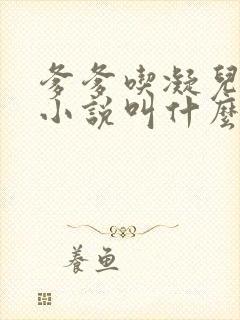 爹爹喫凝兒
小說叫什麼
養魚